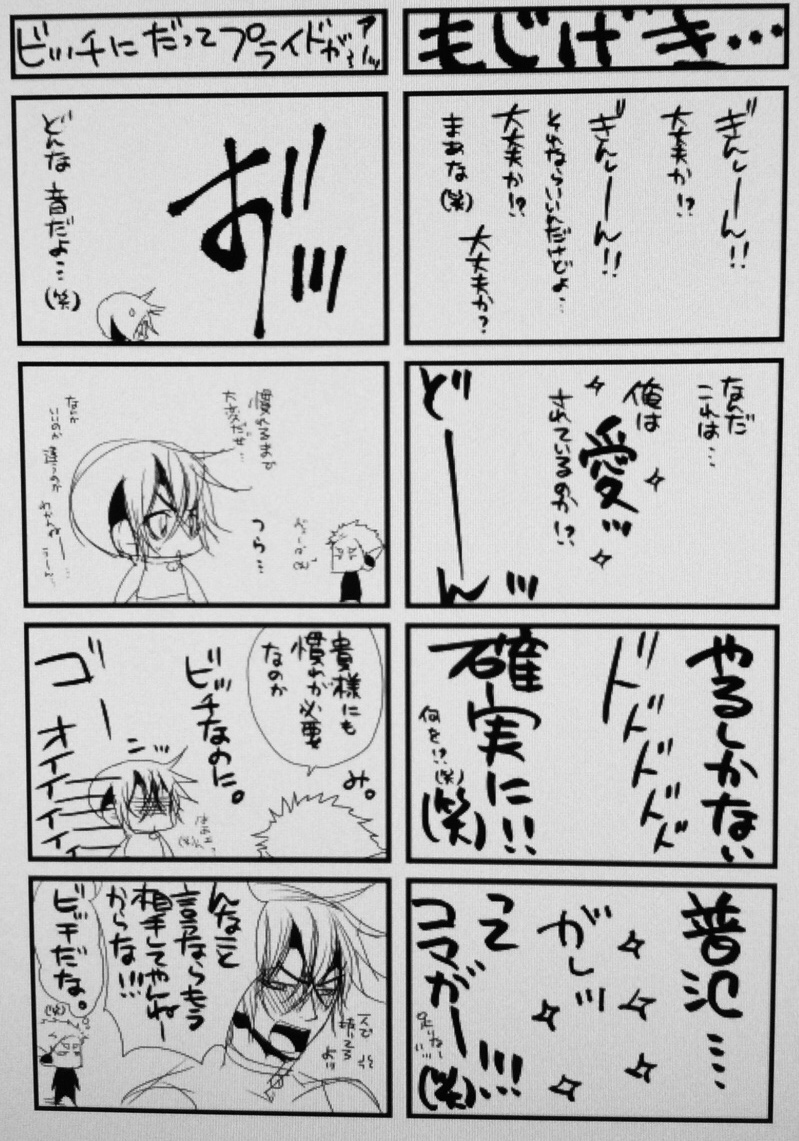 もじげき…
ぎんしーーん!!
大丈夫か!?
ぎんしーーん!!
それならいいんだけどよ…
大丈夫か!?
まあな(笑)
大丈夫か?
なんだ
これは…
俺は
愛ッ
されているのか!?
どーーんッ
やるしかない
ドドドドド
確実に!!
何を!?(笑)
(笑)
普氾……
ガシッ
って
コマがーー!!!
足りねー
(笑)
ビッチにだってプライドがァーッ
おッ
どんな音だよ…(笑)
慣れるまで
大変だぜ…
つら…
なにが
いいのか違うのか
わかんねー…
貴様にも
慣れが必要
なのか
み。
ビッチなのに。
ゴーーンッ
オイイイイィ
んなこと
言ならもう
相手してやんねー
からな!!!
ビッチだな。
(笑)